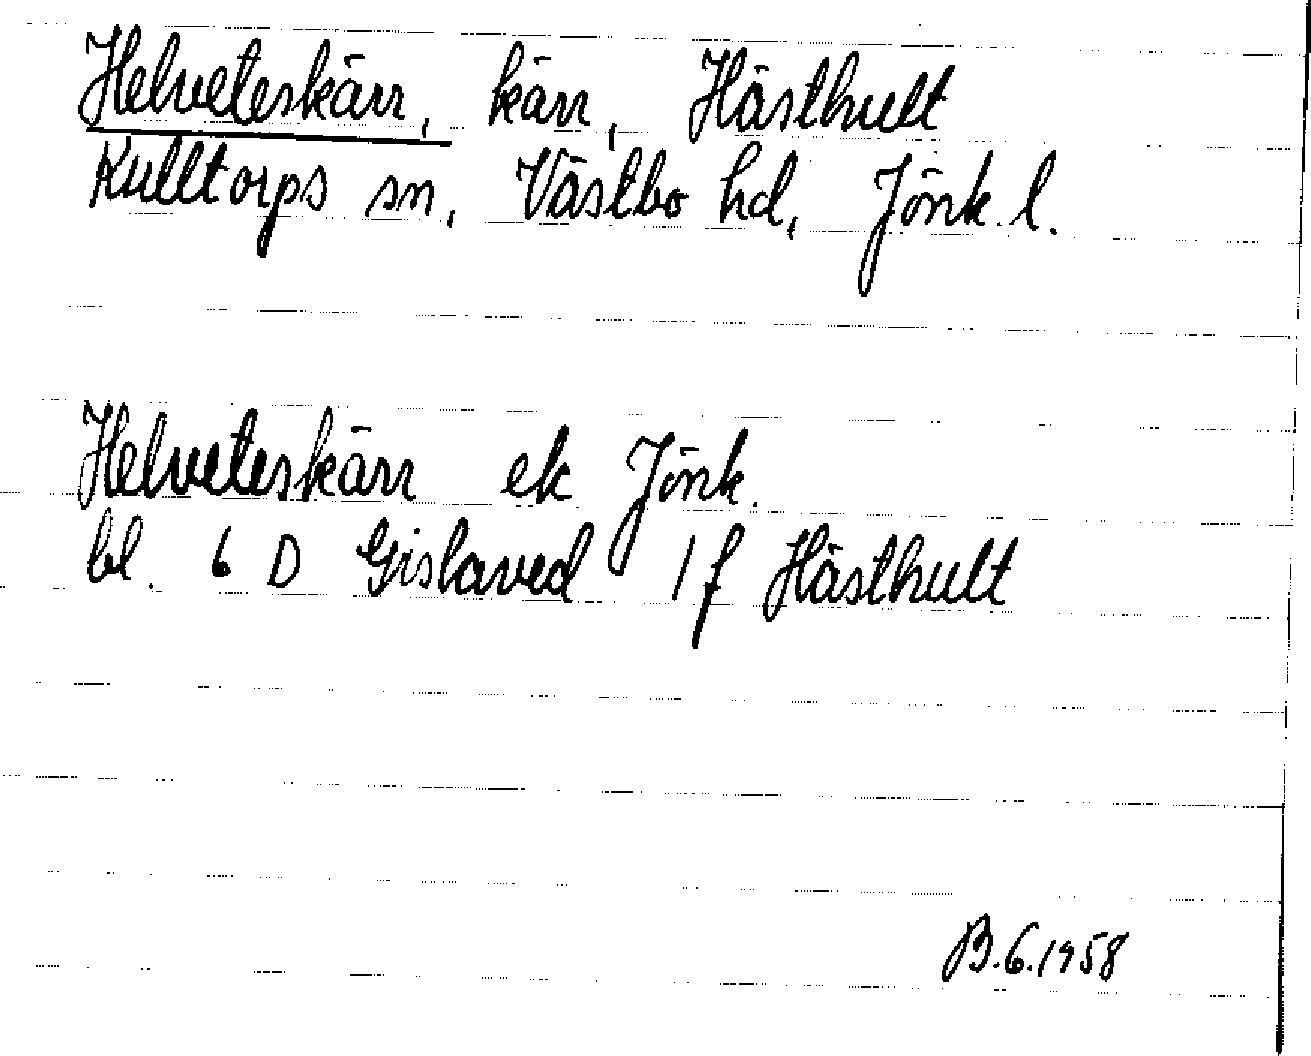 Helveteskärr, kärr, Hästhult
Kulltorps sn, Västbo hd, Jönk. l.
Helveteskärr ek Jönk.
bl. 6 D Gislaved 1 f Hästhult
B.6.1958